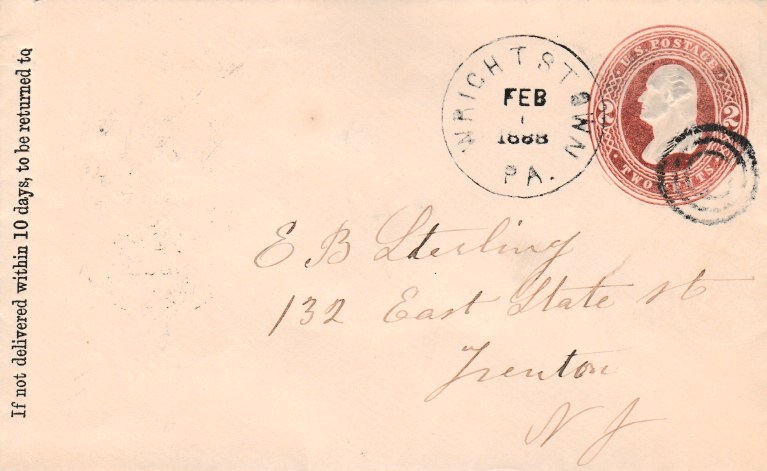 If not delivered within 10 days, to be returned to
WRIGHTSTOWN
FEB
1
1888
PA.
U.S. POSTAGE
2 2
TWO CENTS
E B Sterling
132 East State st
Trenton
N J